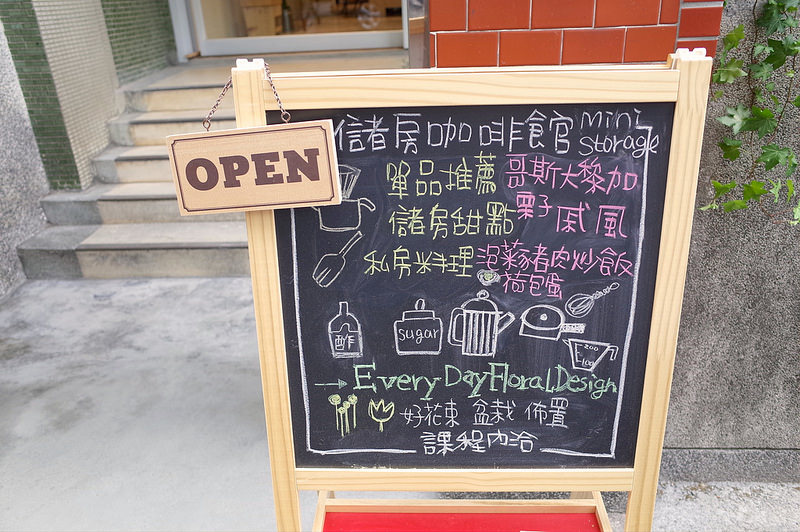 OPEN
儲房咖啡館 mini storage
單品推薦 哥斯大黎加
儲房甜點 栗子戚風
私房料理 泡菜豬肉炒飯
荷包蛋
酢
Sugar
200
100
EveryDayFloralDesign
好花束 盆栽 佈置
課程內洽